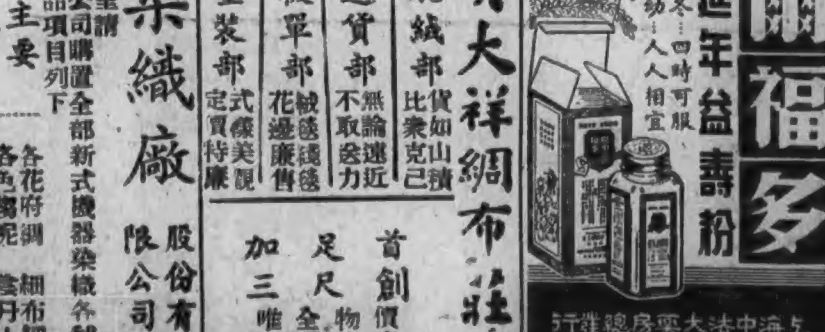 福多
延年益壽粉
冬…四時可服
幼…人人相宜
海中法大藥房總
大祥綢布莊
絨部
貨如山積
比衆克己
送貨部
無論遠近
不取送力
單部
絨毯綫毯
花邊廉售
裝部
式樣美觀
定價特廉
首創
足尺
加三
價
物
全
唯
染織廠
股份有
限公司
公司購置全部新式機器染織各
品項目列下
主要
各花府綢 細布
各色 陰丹